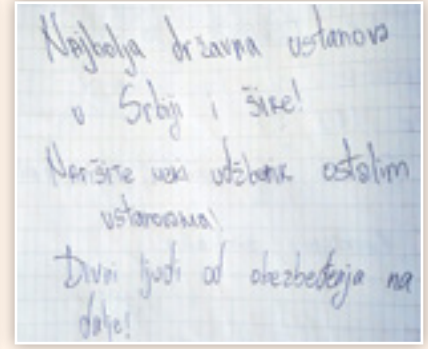 Najbolja državna ustanova
u Srbiji i šire!
Napišite neki udžbenik ostalim
ustanovama!
Divni ljudi od obezbeđenja na
dalje!